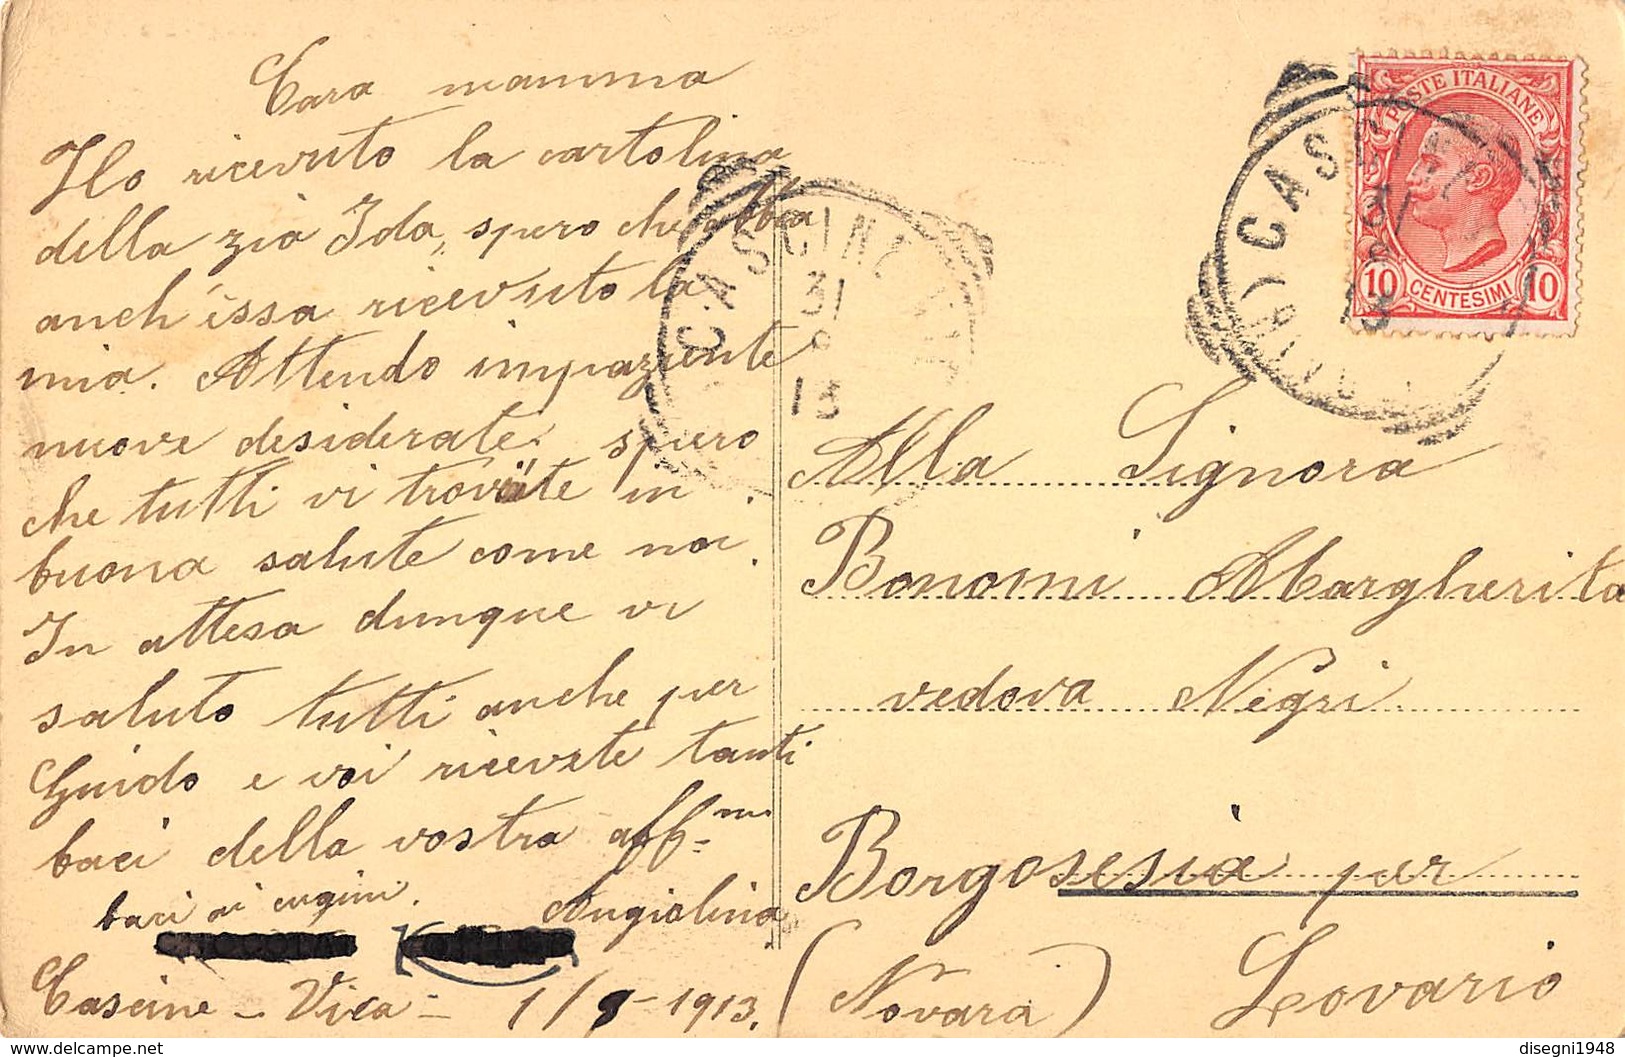 Cara mamma
Ho ricevuto la cartolina
della zia Ida, spero che abbia
anch'essa ricevuto la
mia. Attendo impaziente
nuove desiderate, spero
che tutti vi troviate in
buona salute come noi.
In attesa dunque vi
saluto tutti anche per
Guido e voi ricevete tanti
baci della vostra aff.ma
baci ai cugini. Angiolina
Cascine - Vica - 1/9-1913.
CASCINE
31
8
13
POSTE ITALIANE
10 CENTESIMI 10
CASCINE
13
Alla Signora
Bonomi Margherita
vedova Negri
Borgosesia per
(Novara) Lovario
disegni1948